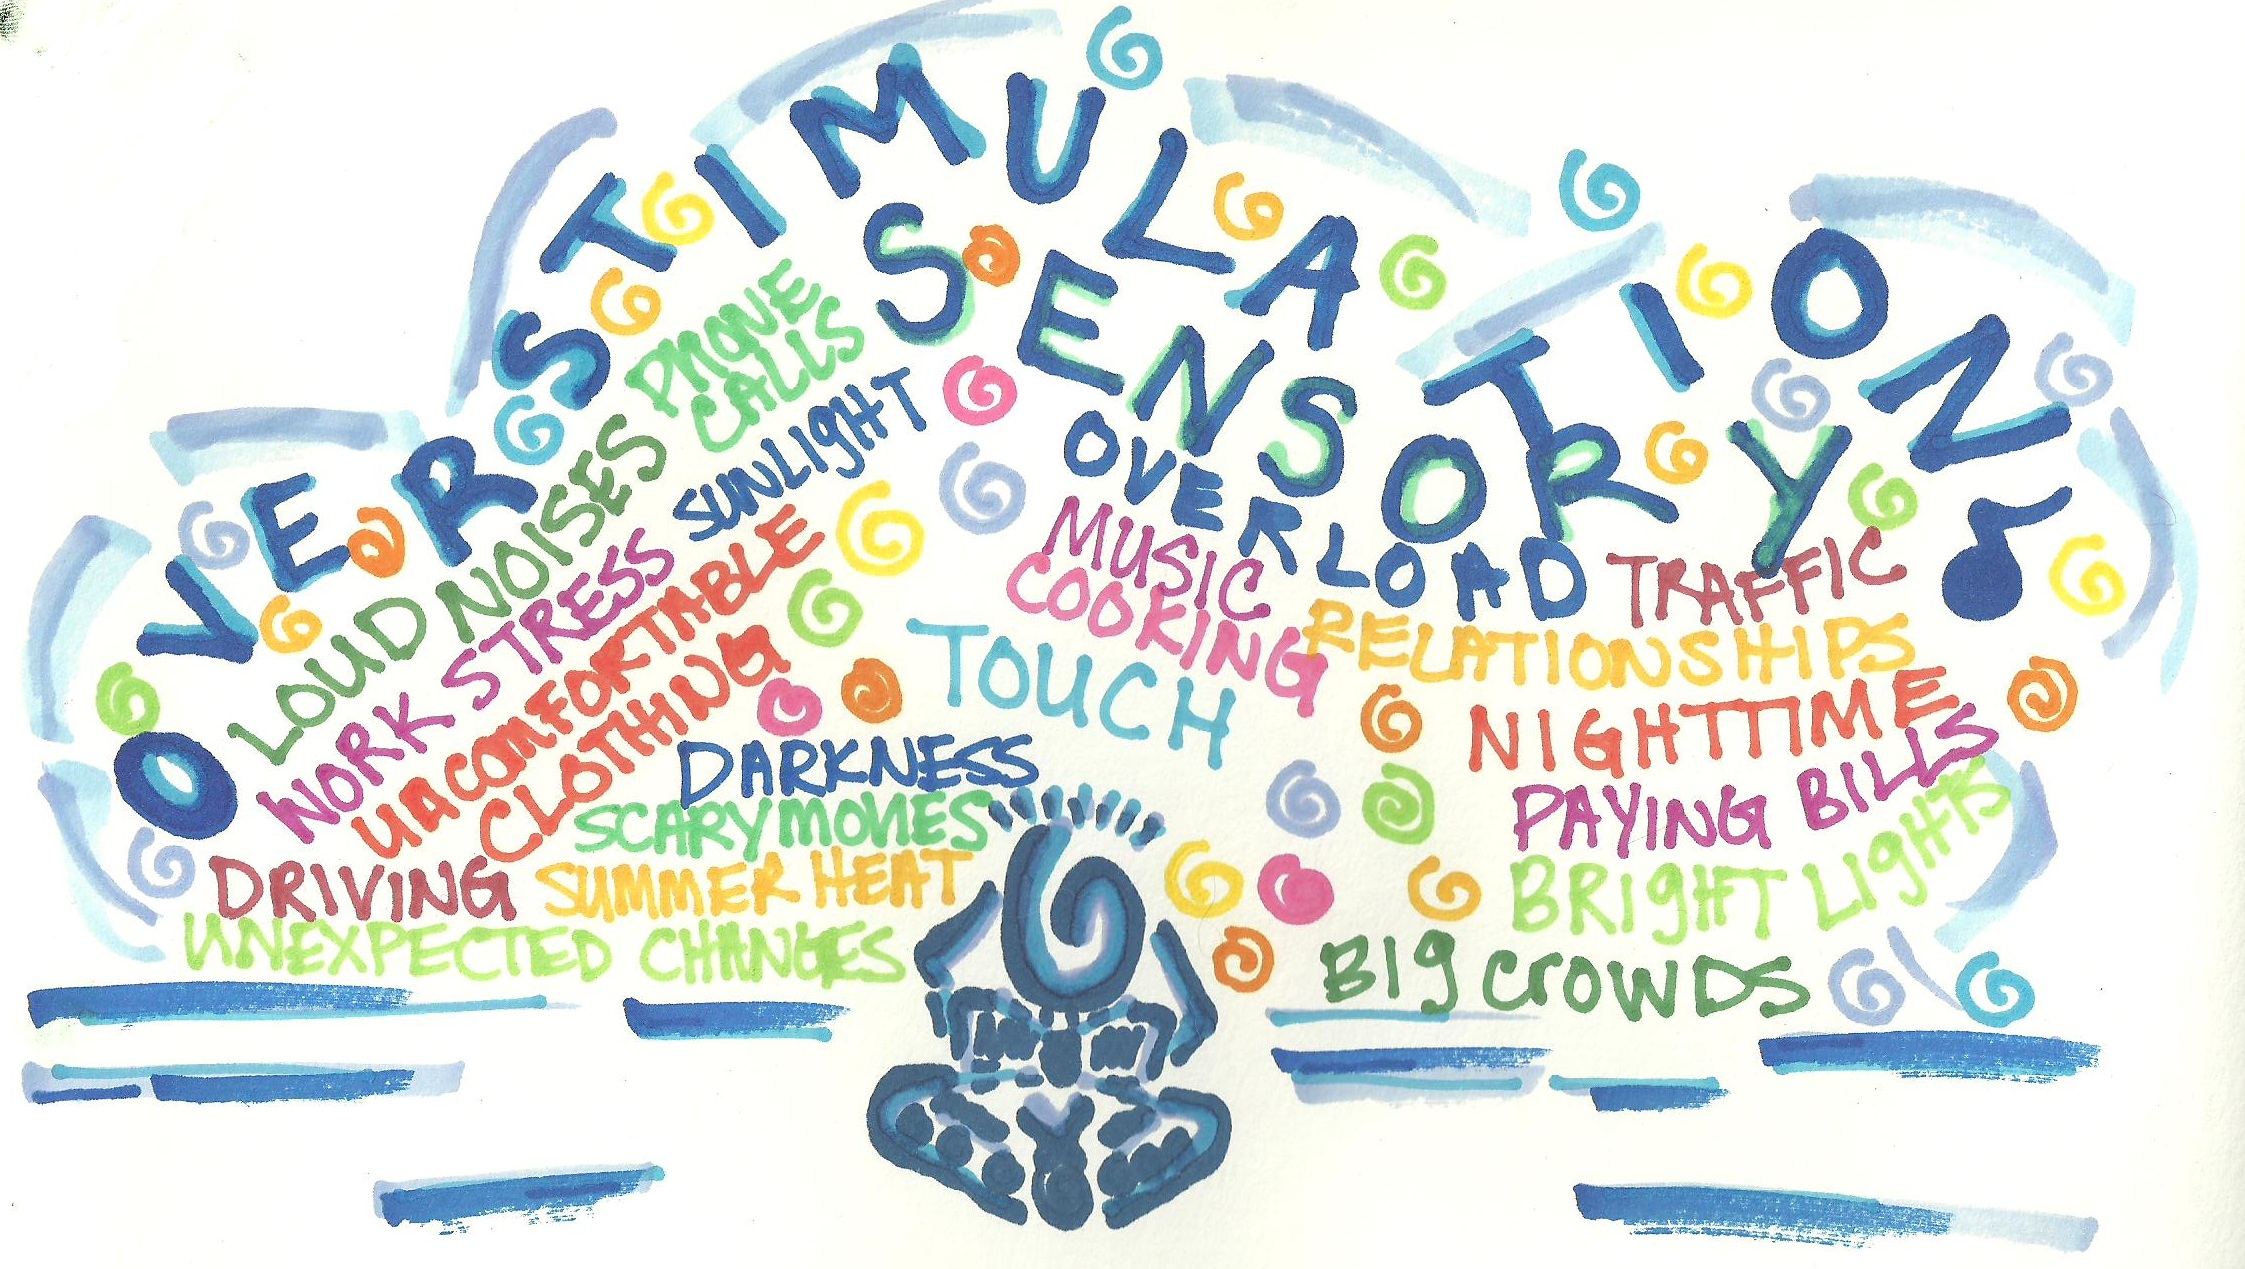 OVERSTIMULATION
SENSORY
OVERLOAD
PHONE
CALLS
LOUD NOISES
SUNLIGHT
WORK STRESS
UNCOMFORTABLE
CLOTHING
DARKNESS
SCARY MOVIES
DRIVING
SUMMER HEAT
UNEXPECTED CHANGES
TOUCH
MUSIC
COOKING
TRAFFIC
RELATIONSHIPS
NIGHTTIME
PAYING BILLS
BRIGHT LIGHTS
BIG CROWDS